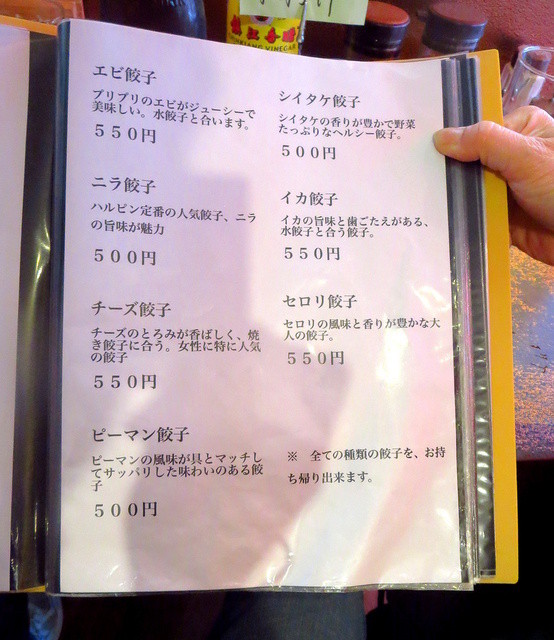 鎮江香醋
CHINKIANG VINEGAR
エビ餃子
プリプリのエビがジューシーで
美味しい。水餃子と合います。
５５０円
ニラ餃子
ハルビン定番の人気餃子、ニラ
の旨味が魅力
５００円
チーズ餃子
チーズのとろみが香ばしく、焼
き餃子に合う。女性に特に人気
の餃子
５５０円
ピーマン餃子
ピーマンの風味が具とマッチし
てサッパリした味わいのある餃
子
５００円
シイタケ餃子
シイタケの香りが豊かで野菜
たっぷりなヘルシー餃子。
５００円
イカ餃子
イカの旨味と歯ごたえがある、
水餃子と合う餃子。
５５０円
セロリ餃子
セロリの風味と香りが豊かな大
人の餃子。
５５０円
※　全ての種類の餃子を、お持
ち帰り出来ます。